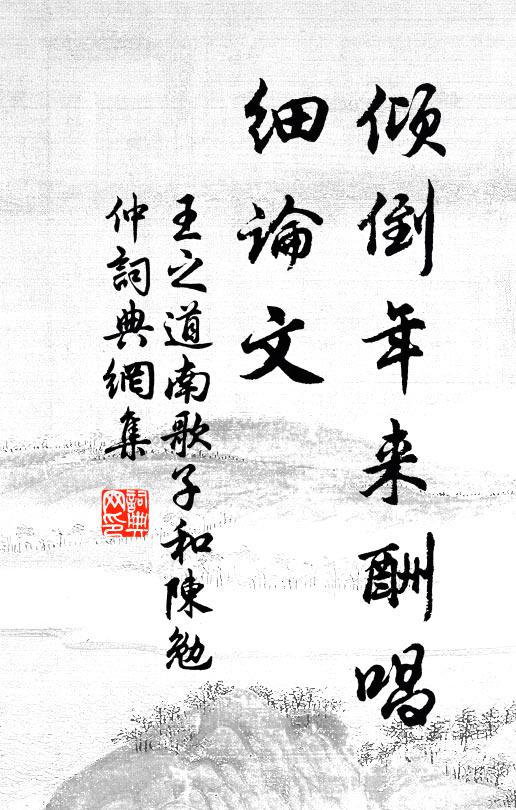 倾倒年来酬唱
细論文
王之道南歌子和陳勉
仲詞典網集
詞典网印